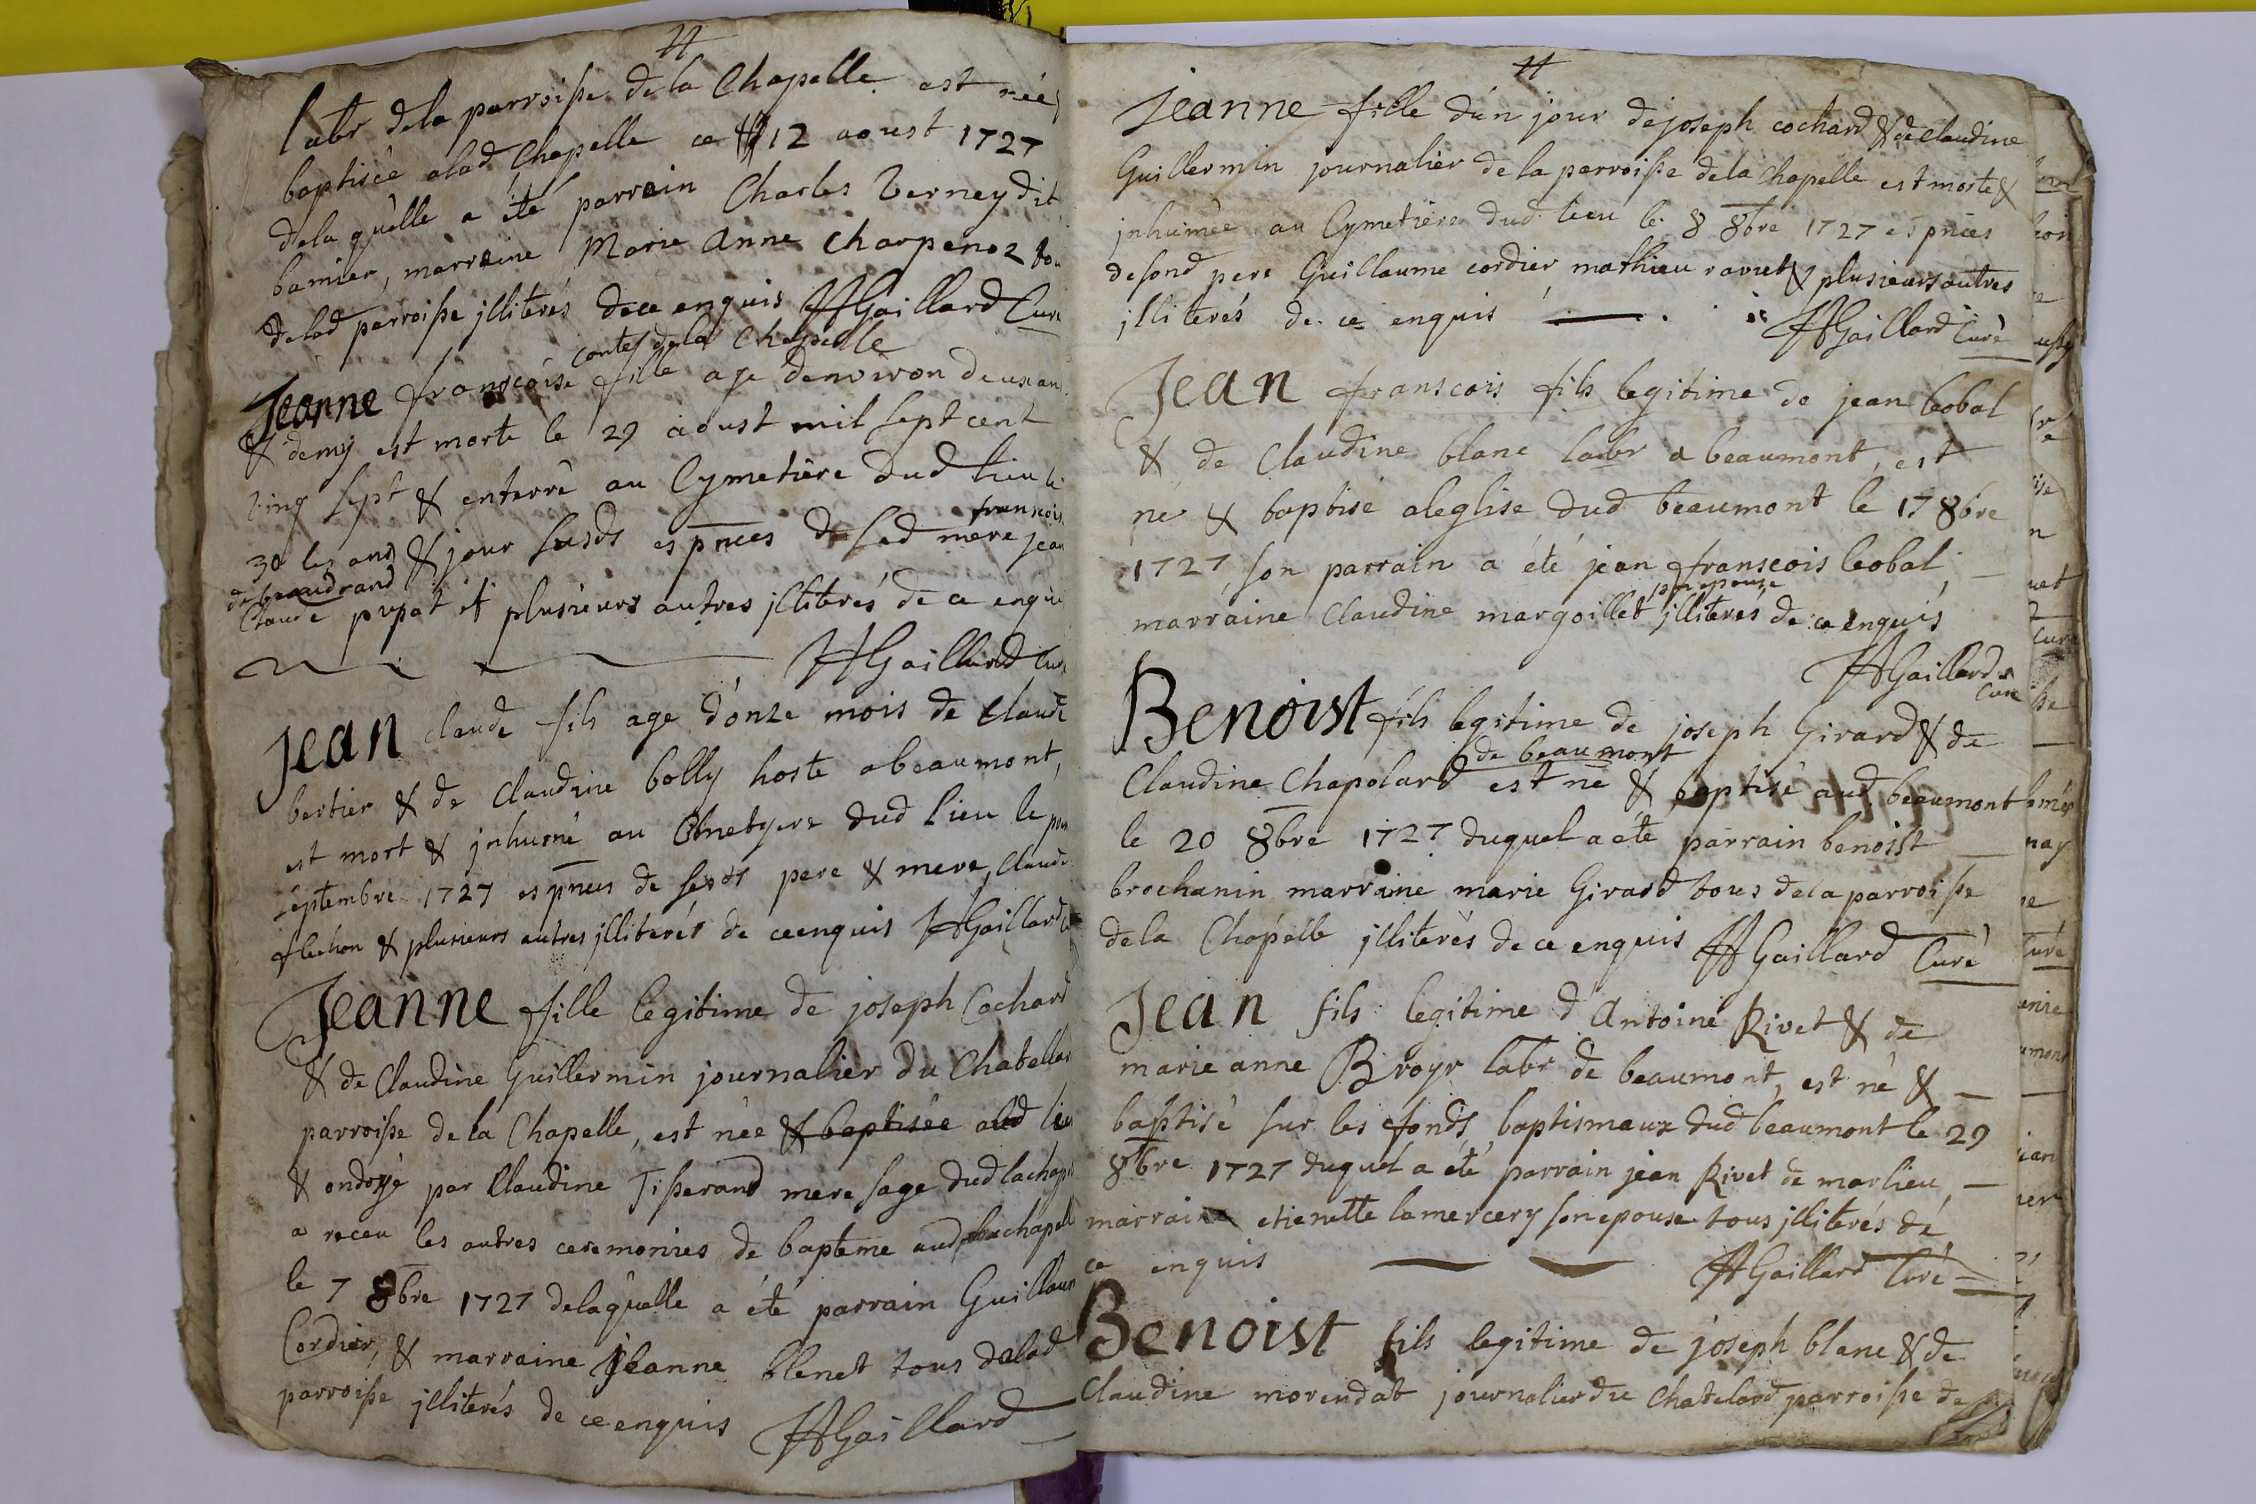 labr dela parroisse de la Chapelle est née
baptisée alad Chapelle ce 12 aoust 1727
dela quelle a été parrain Charles Verney dit
bamier, marraine Marie Anne Charpenoz
delad parroisse jlliterés dece enquis HGaillard Curé
Contes dela Chapelle
Jeanne franscoise fille age denviron deux an
& demy est morte le 29 aoust mil sept cent
ving sept & enterré au Cymetiere dud lieu le
30 les ans & jour susds es pnces de sad mere jean franscois
de beaudrand
Claude pupat et plusieurs autres jlliterés de ce enquis
HGaillard Curé
Jean claude fils age d'onze mois de Claude
bertier & de Claudine bolly hoste a beaumont,
est mort & jnhumé au dud lieu le
septembre 1727 es pnces de sesds pere & mere, Claude
flechon & plusieurs autres jlliterés de ce enquis HGaillard
Jeanne fille legitime de joseph Cochard
& de Claudine Guillermin journalier du Chatellar
parroisse de la Chapelle, est née & baptisée aud lieu
& ondoyé par Claudine Tisserand mere sage dud lachapel
a receu les autres ceremonies de bapteme aud lachapelle
le 7 8bre 1727 delaquelle a été parrain Guillaum
Cordier, & marraine Jeanne blenet tous delad
parroisse jlliterés de ce enquis HGaillard
Jeanne fille d'un jour de joseph cochard & de claudine
Guillermin journalier de la parroisse dela Chapelle est morte &
jnhumée au Cymetiere dud lieu le 8 8bre 1727 es pnces
de sond pere Guillaume cordier mathieu ravret & plusieurs autres
jlliterés de ce enquis
HGaillard Curé
Jean franscois fils legitime de jean leobal
& de Claudine blanc labr a beaumont, est
né & baptisé aleglise dud beaumont le 17 8bre
1727, son parrain a été jean franscois leobal
son epouse
marraine Claudine margoillet jlliterés de ce enquis
HGaillard Curé
Benoist fils legitime de joseph Girard & de
de beaumont
Claudine Chapolard est né & baptisé aud beaumont
le 20 8bre 1727 duquel a été parrain benoist
brochanin marraine marie Girard tous dela parroisse
dela Chapelle jlliterés de ce enquis HGaillard Curé
Jean fils legitime d Antoine Rivet & de
marie anne Broyr labr de beaumont, est né &
baptisé sur les fonds baptismaux dud beaumont le 29
8bre 1727 duquel a été parrain jean Rivet de marlieu,
marraine etienette lamercery son epouse tous jlliterés de
ce enquis
HGaillard Curé
Benoist fils legitime de joseph blanc & de
Claudine morendat journalier du Chatelard parroisse de